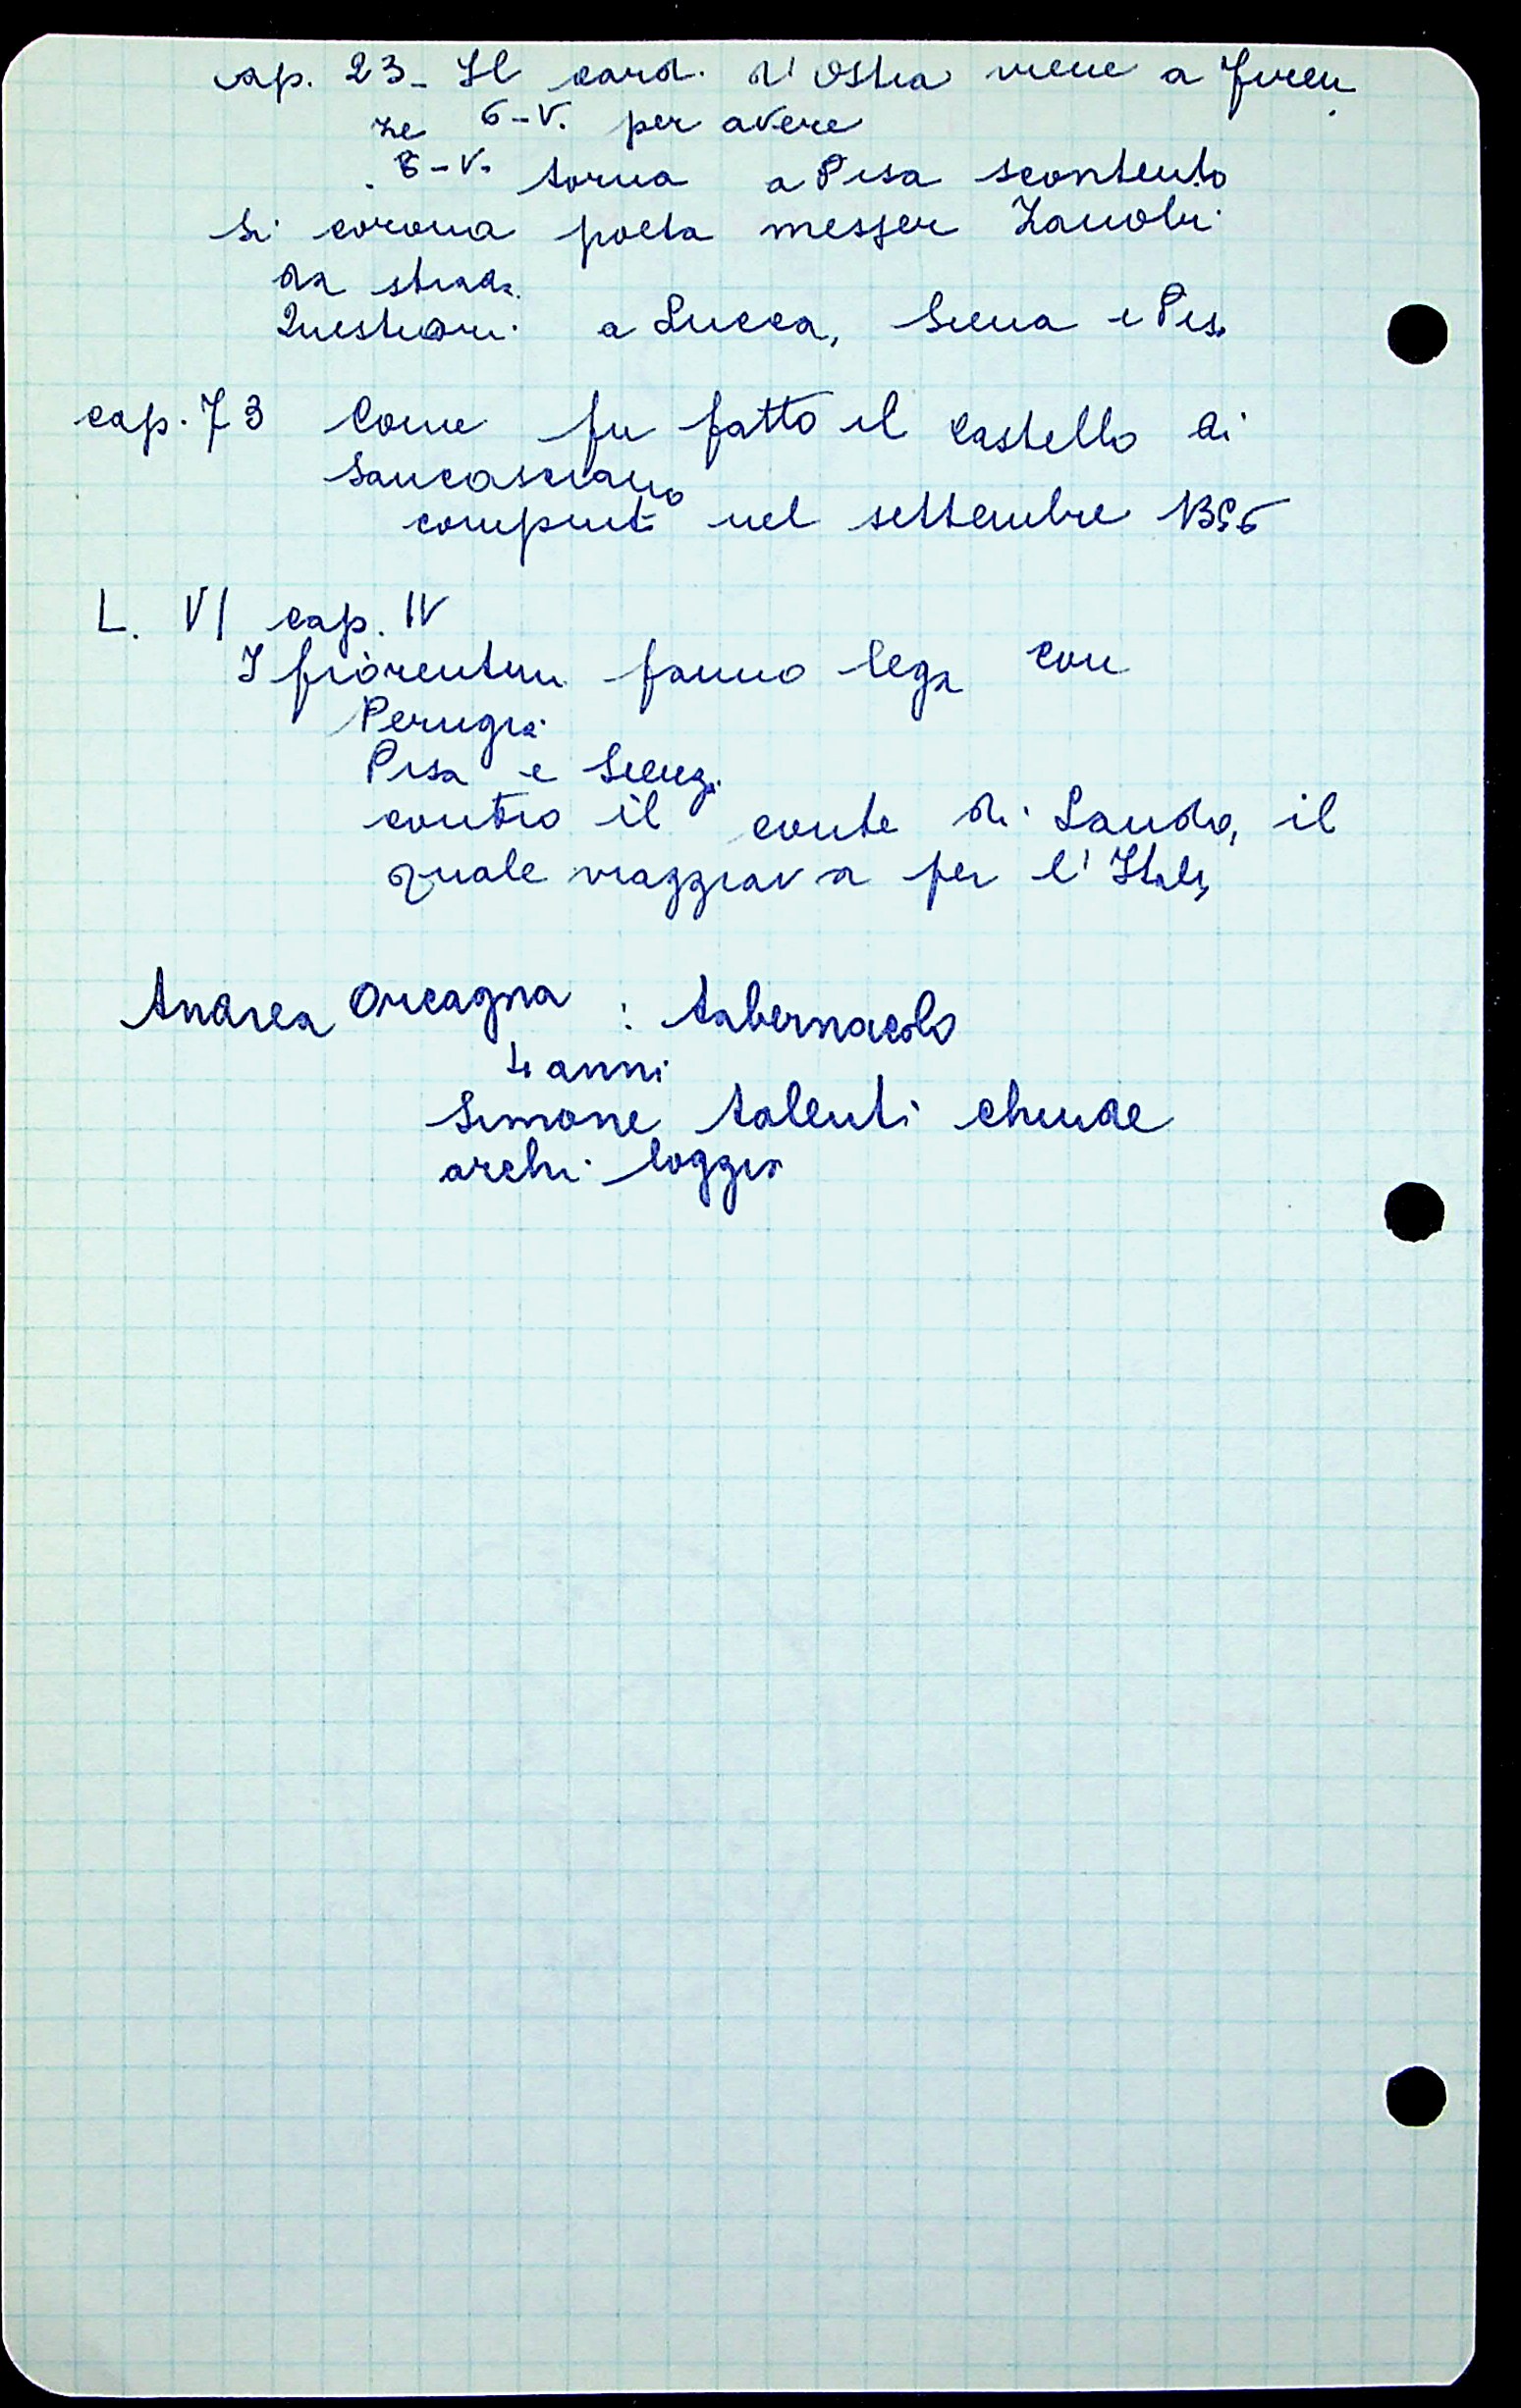 cap. 23 - Il card. d'Ostia viene a Firen
ze 6-V. per avere
8-V. torna a Pisa scontento
Si corona poeta messer Zanobi
da strada.
Questioni a Lucca, Siena e Pisa
cap. 73 Come fu fatto il castello di
Sancasciano
compiuto nel settembre 1356
L. VI cap. IV
I fiorentini fanno lega con
Perugia
Pisa e Siena.
contro il conte di Lando, il
quale viaggiava per l'Italia
Andrea Orcagna : tabernacolo
4 anni
Simone talenti chiude
archi loggia